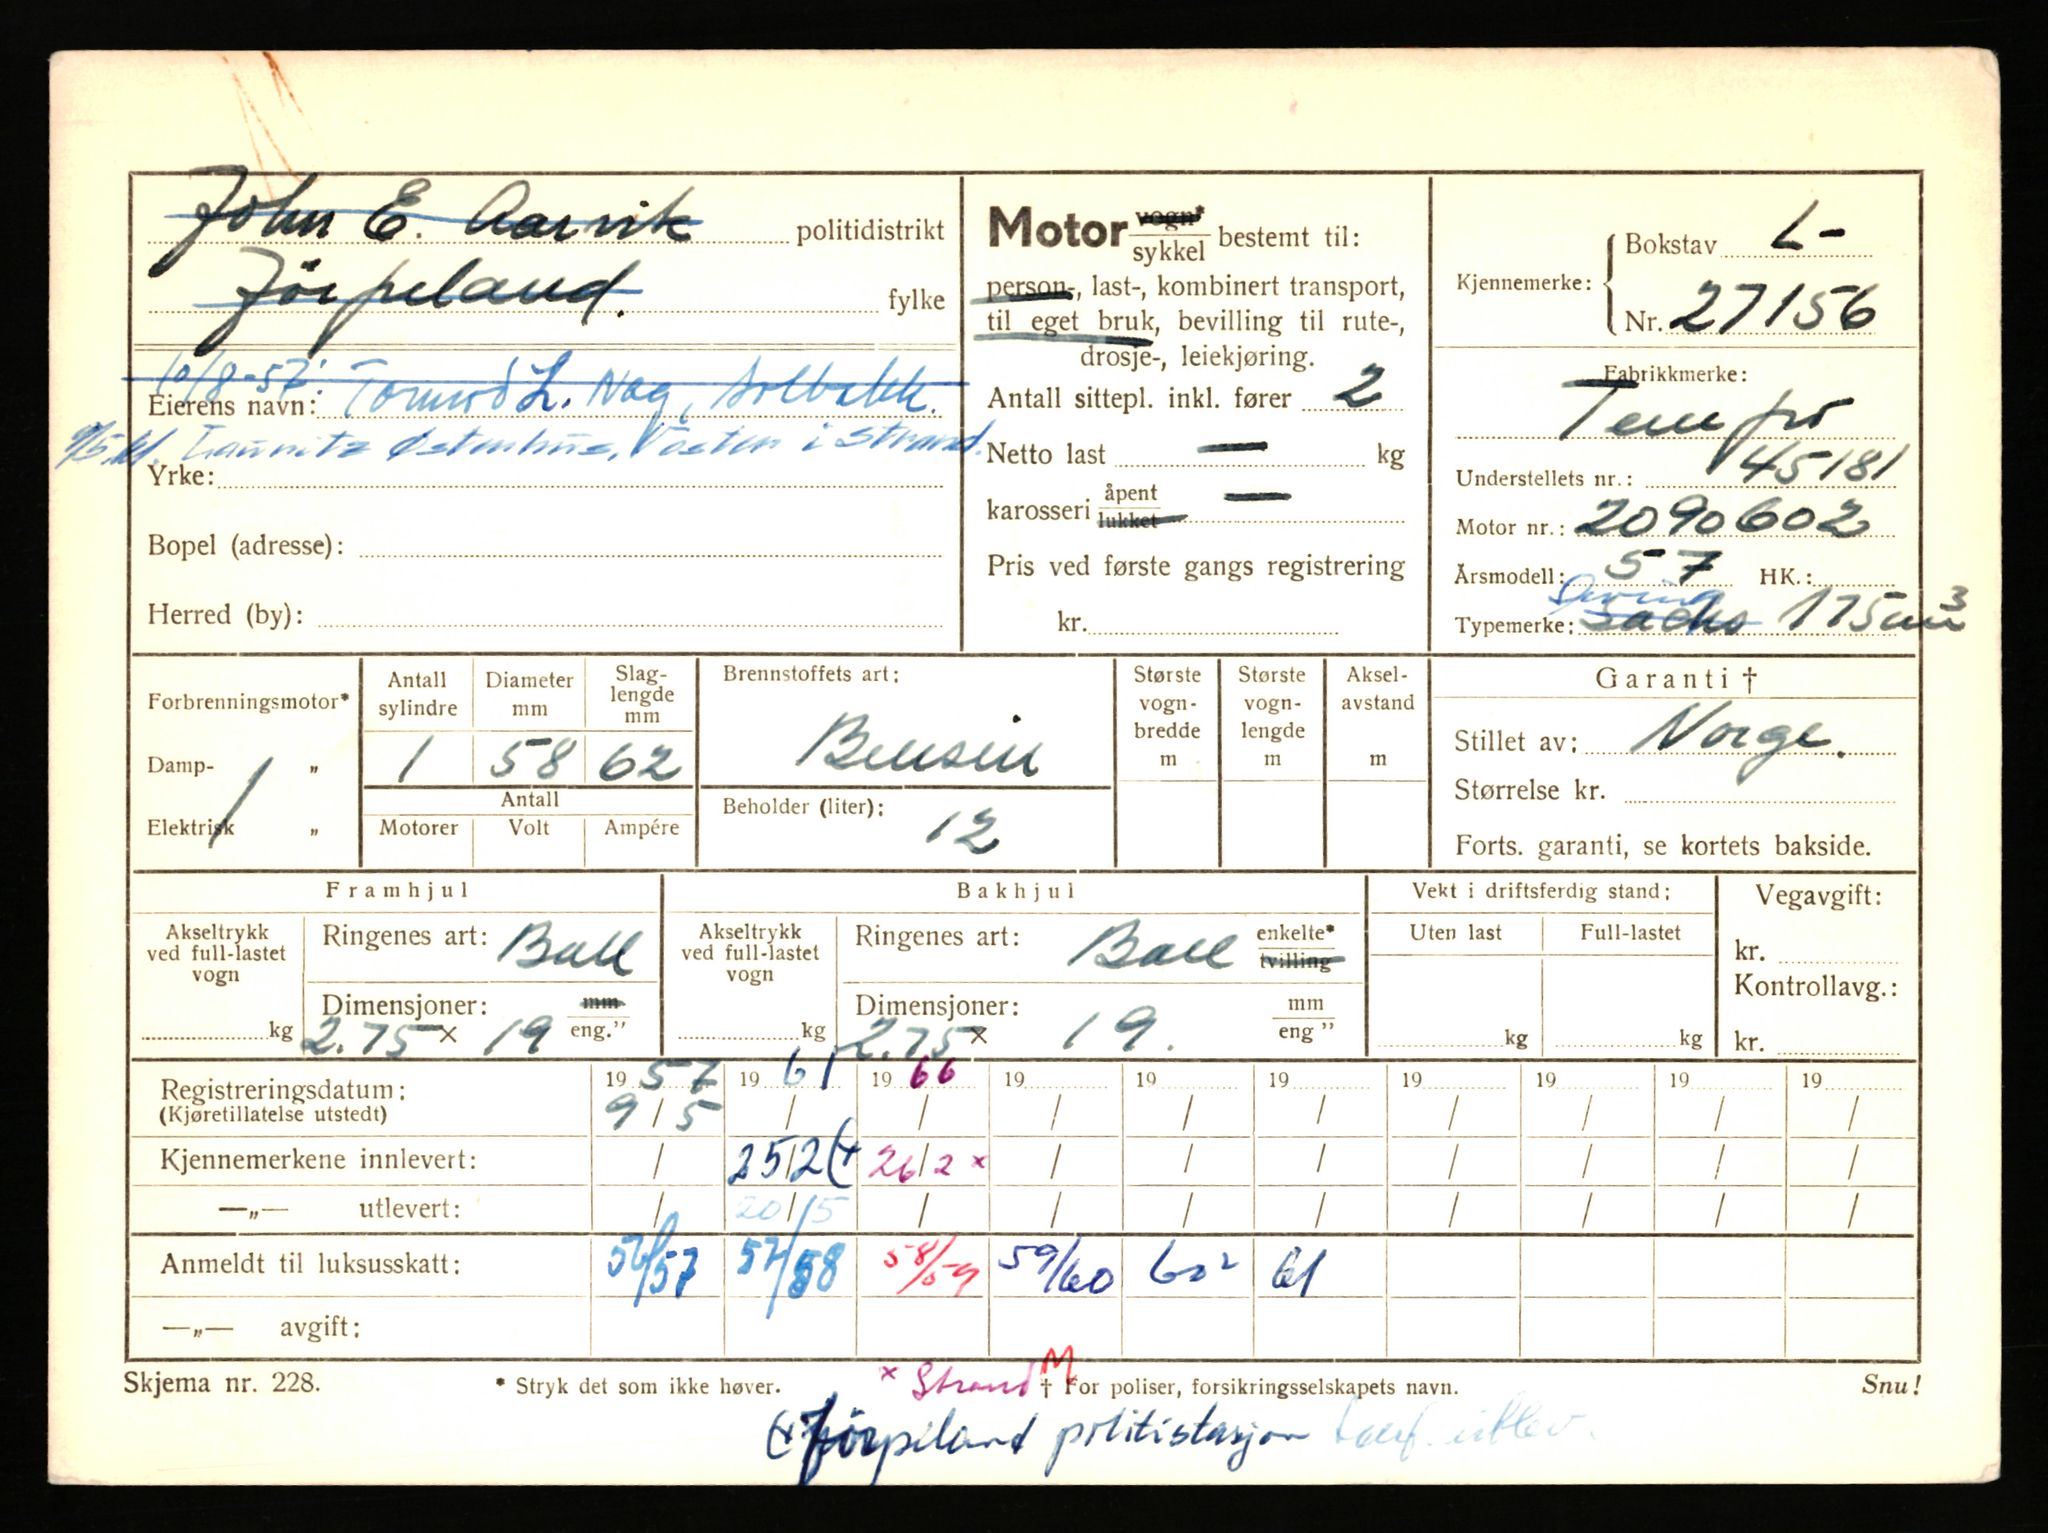 John E. Aarvik politidistrikt
Jörpeland. fylke
10/8-57: Tormod L. Nag, Solbakk.
Eierens navn:
9/5.61. Lauritz Østenhus, Tøsten i Strand.
Yrke:
Bopel (adresse):
Herred (by):
Motor vogn* / sykkel bestemt til:
person-, last-, kombinert transport,
til eget bruk, bevilling til rute-,
drosje-, leiekjøring.
Antall sittepl. inkl. fører 2
Netto last — kg
karosseri åpent / lukket —
Pris ved første gangs registrering
kr.
Kjennemerke: Bokstav L-
Nr. 27156
Fabrikkmerke:
Tempo
Understellets nr.: 45181
Motor nr.: 2090602
Årsmodell: 57 HK.:
Typemerke: Sachs 175cm3
Forbrenningsmotor*
Damp- „
Elektrisk „
Antall sylindre 1
Diameter mm 58
Slag-lengde mm 62
Antall
Motorer Volt Ampére
Brennstoffets art:
Bensin
Beholder (liter): 12
Største vogn-bredde m
Største vogn-lengde m
Aksel-avstand m
Garanti †
Stillet av: Norge.
Størrelse kr.
Forts. garanti, se kortets bakside.
Framhjul
Akseltrykk ved full-lastet vogn kg
Ringenes art: Ball
Dimensjoner: mm
2.75 x 19 eng.”
Bakhjul
Akseltrykk ved full-lastet vogn kg
Ringenes art: Ball enkelte* / tvilling
Dimensjoner: mm
2.75 x 19. eng ”
Vekt i driftsferdig stand:
Uten last Full-lastet
kg kg
Vegavgift:
kr.
Kontrollavg.:
kr.
Registreringsdatum: 19 57 19 61 19 66 19 19 19 19 19 19 19
(Kjøretillatelse utstedt) 9/5 / / / / / / / / /
Kjennemerkene innlevert: / 25/2 (+ 26/2 x / / / / / / /
—„— utlevert: / 20/5 / / / / / / / /
Anmeldt til luksusskatt: 56/57 57/58 58/59 59/60 60² 61
—„— avgift:
Skjema nr. 228. * Stryk det som ikke høver. x Strand M † For poliser, forsikringsselskapets navn. Snu!
(+ Jörpeland politistasjon utlev.